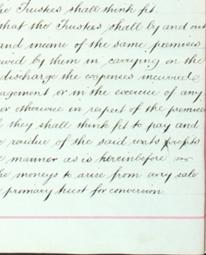 the Trustees shall think fit.
that the Trustees shall by and out
and income of the same premises
incurred by them in carrying on the
discharge the expenses incurred
management or in the exercise of any
or otherwise in respect of the premises
they shall think fit to pay and
residue of the said rents profits
manner as is hereinbefore
the moneys to arise from any sale
primary trust for conversion